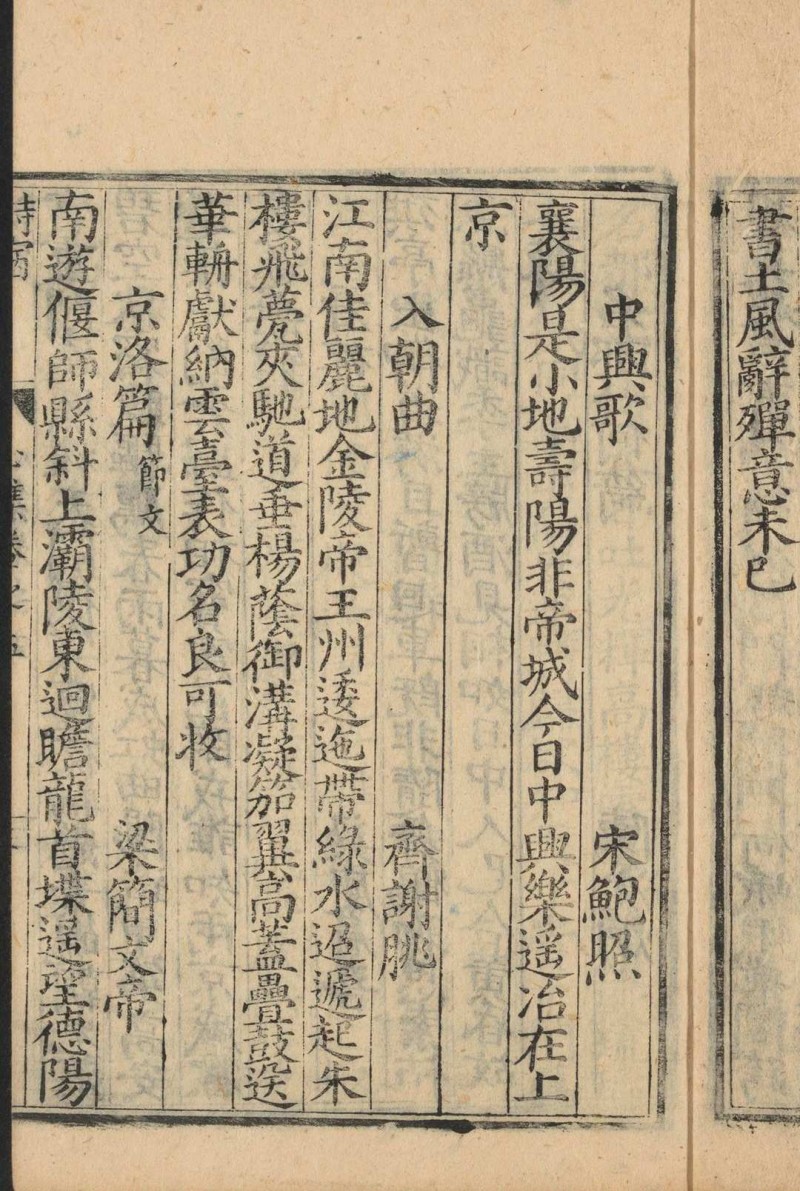 書土風辭殫意未已
中興歌 宋鮑照
襄陽是小地壽陽非帝城今日中興樂遥冶在上
京
入朝曲 齊謝朓
江南佳麗地金陵帝王州逶迤帶綠水迢遞起朱
樓飛甍夾馳道垂楊蔭御溝凝笳翼高蓋疊鼓送
華輈獻納雲臺表功名良可收
京洛篇 節文 梁簡文帝
南遊偃師縣斜上灞陵東迴瞻龍首堞遥望德陽